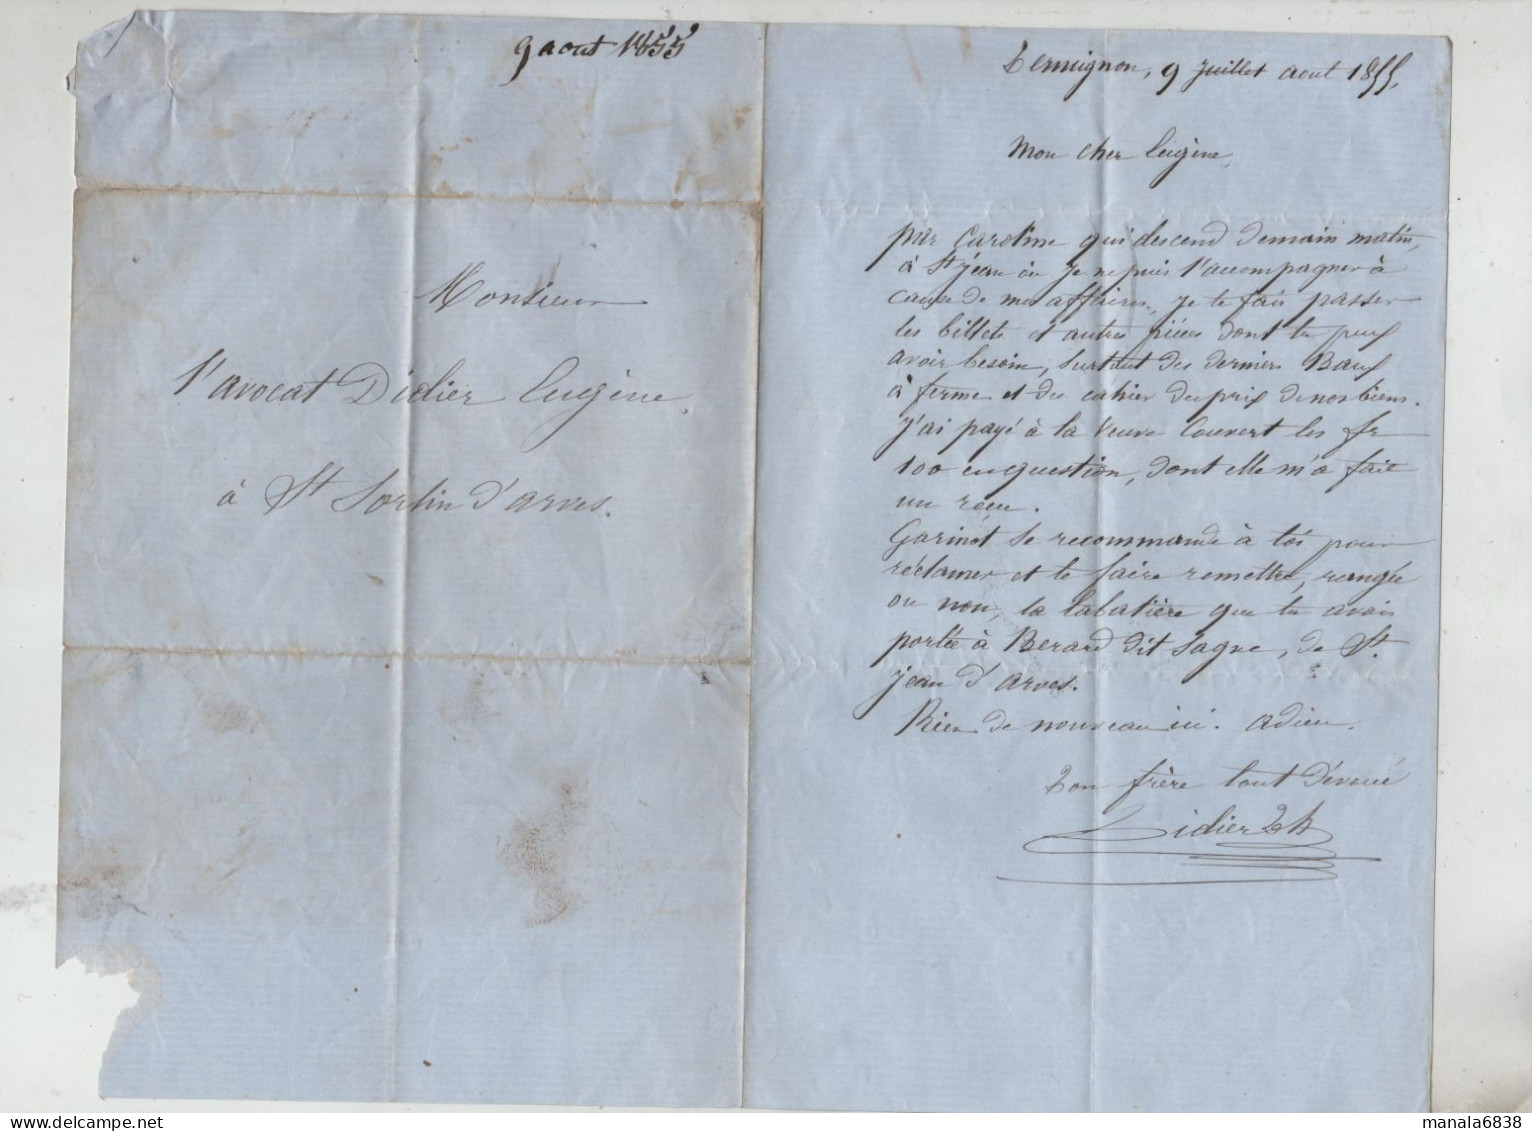 9 aout 1855
Monsieur
l'avocat Didier Eugène
à St Sorlin d'arves.
Termignon, 9 juillet aout 1855,
Mon cher Eugène,
par Caroline qui descend demain matin,
à St jean où je ne puis l'accompagner à
cause de mes affaires, je te fais passer
les billets et autres pièces dont tu peux
avoir besoin, surtout des derniers Baux
à ferme et du cahier du prix de nos biens.
J'ai payé à la Veuve Couvert les fr
100 en question, dont elle m'a fait
un recu.
Garinot se recommande à toi pour
réclamer et te faire remettre, rangée
ou non, la tabatière que tu avais
portée à Berard dit Sagne, de St
jean d'arves.
Rien de nouveau ici. adieu.
Ton frère tout dévoué
Didier
manala6838